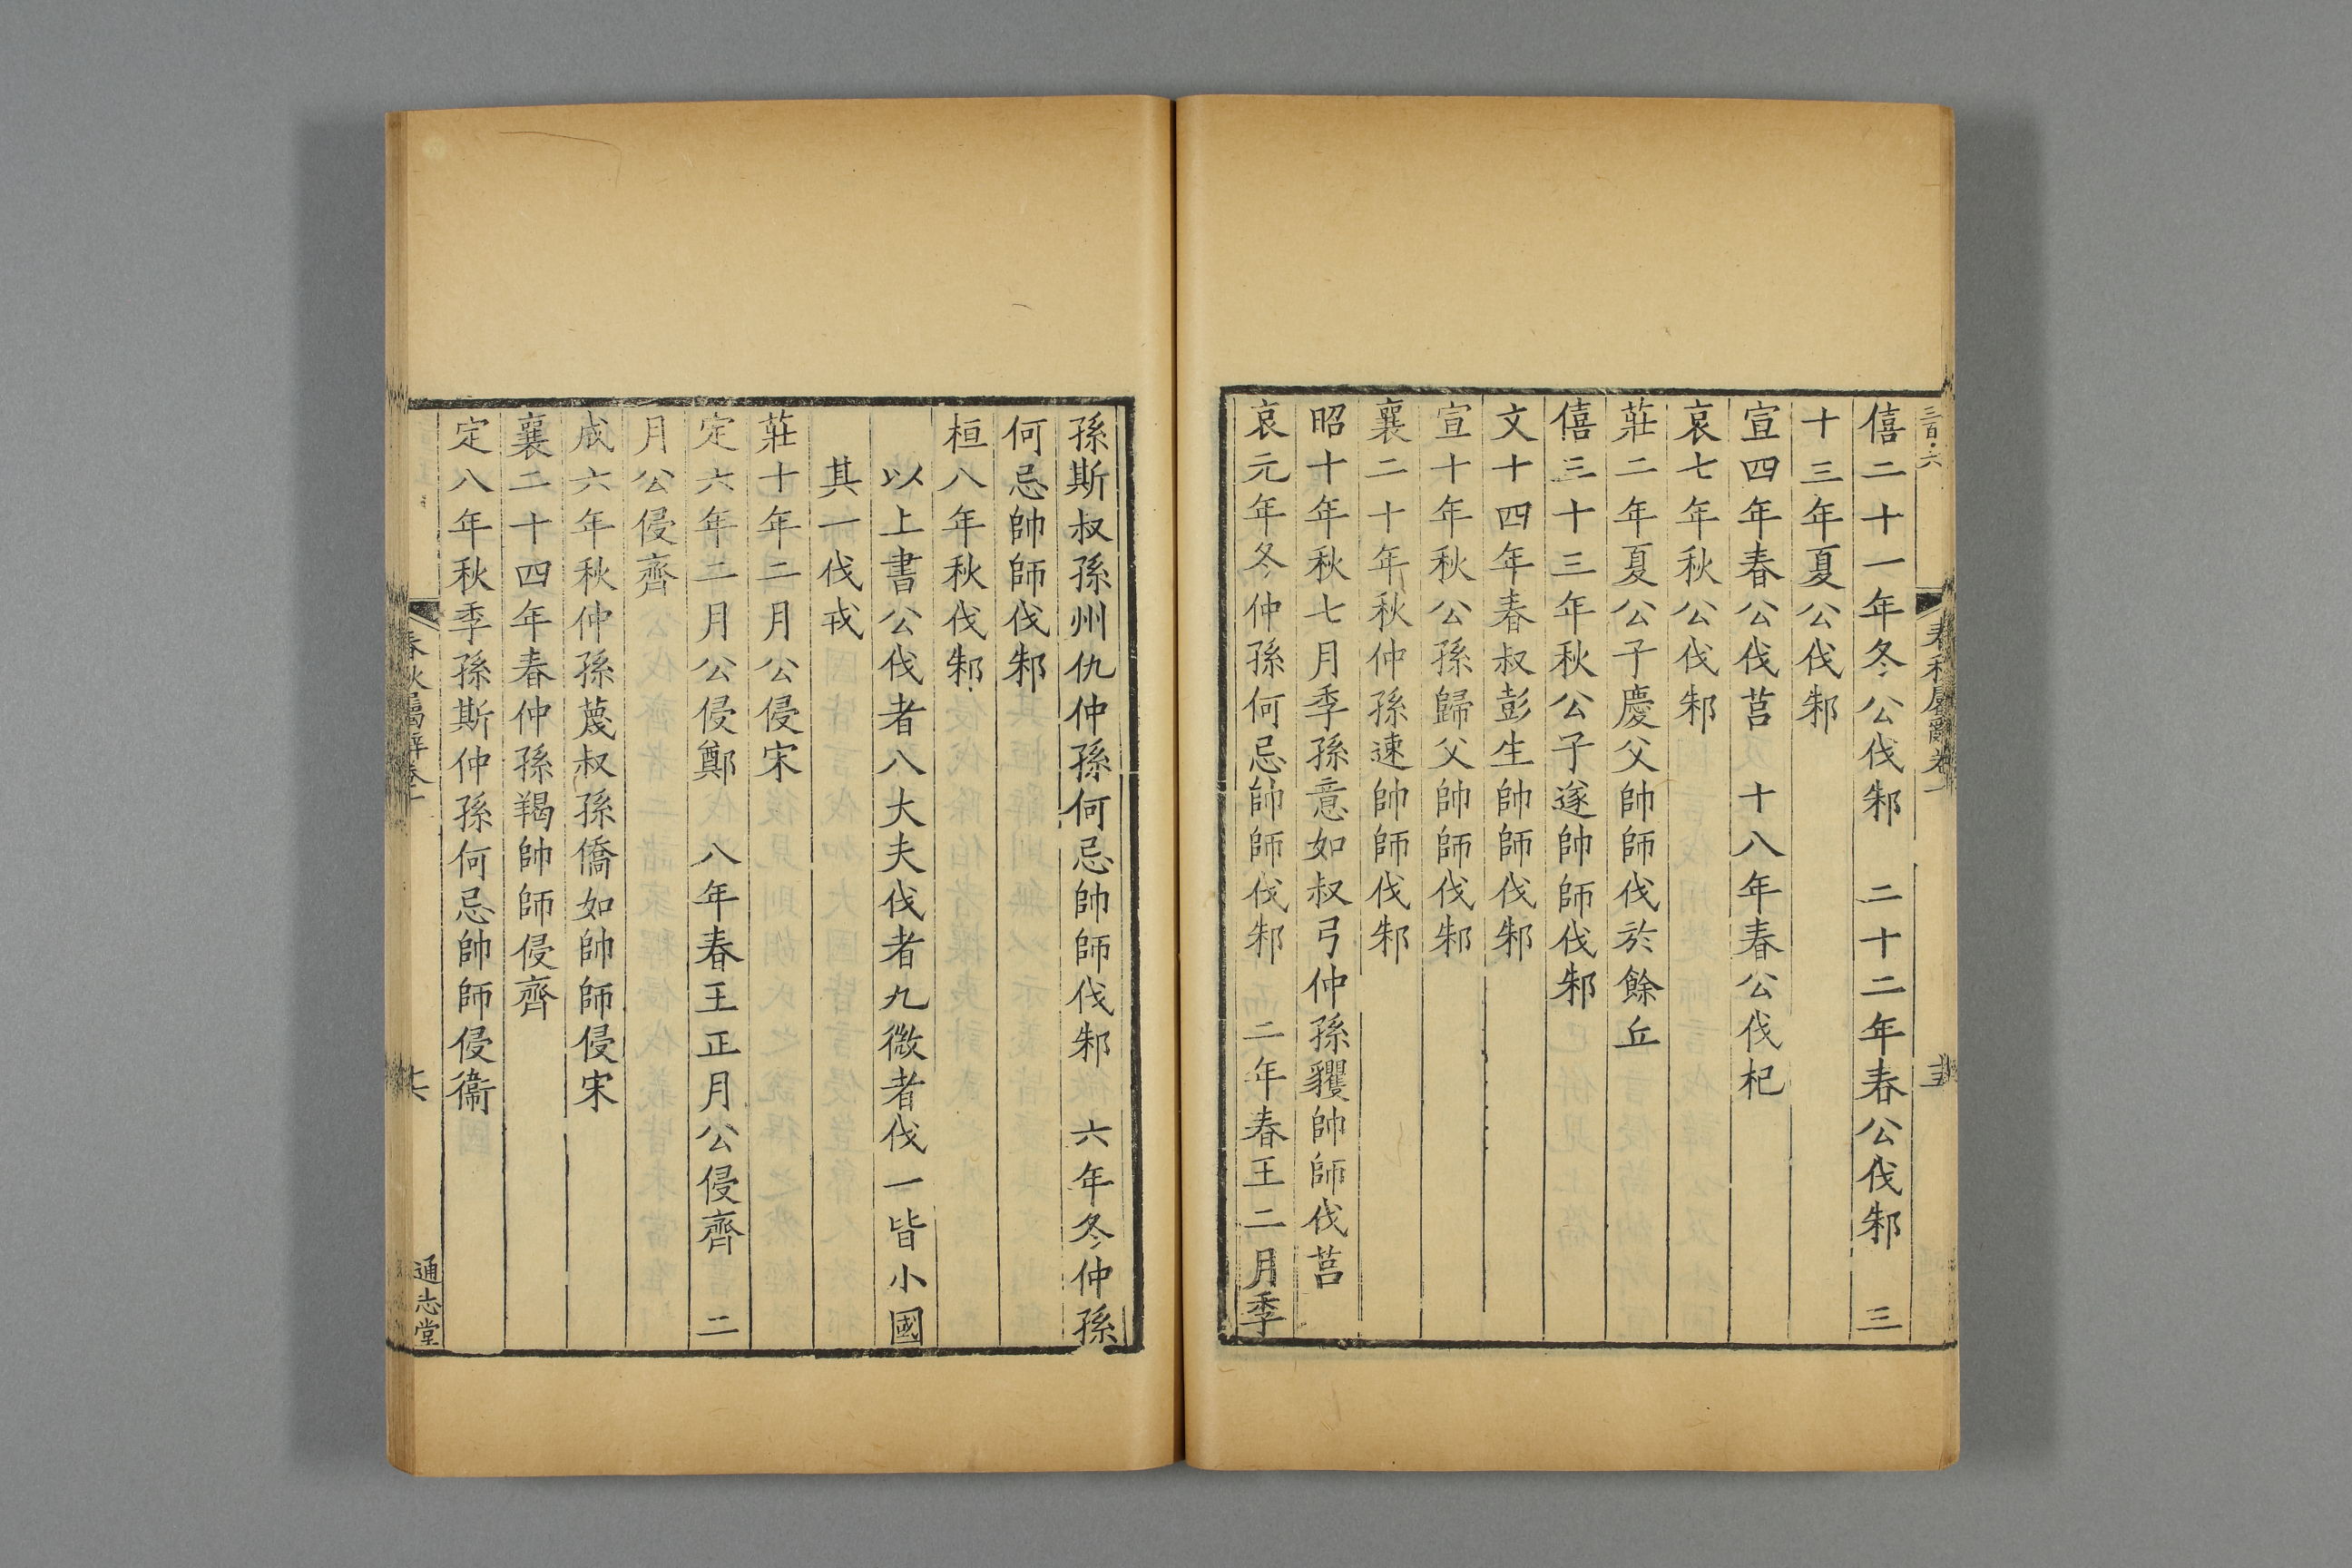 僖二十一年冬公伐邾　二十二年春公伐邾　三
十三年夏公伐邾
宣四年春公伐莒　十八年春公伐杞
哀七年秋公伐邾
莊二年夏公子慶父帥師伐於餘丘
僖三十三年秋公子遂帥師伐邾
文十四年春叔彭生帥師伐邾
宣十年秋公孫歸父帥師伐邾
襄二十年秋仲孫速帥師伐邾
昭十年秋七月季孫意如叔弓仲孫貜帥師伐莒
哀元年冬仲孫何忌帥師伐邾　二年春王二月季
孫斯叔孫州仇仲孫何忌帥師伐邾　六年冬仲孫
何忌帥師伐邾
桓八年秋伐邾
以上書公伐者八大夫伐者九微者伐一皆小國
其一伐戎
莊十年二月公侵宋
定六年二月公侵鄭　八年春王正月公侵齊　二
月公侵齊
成六年秋仲孫蔑叔孫僑如帥師侵宋
襄二十四年春仲孫羯帥師侵齊
定八年秋季孫斯仲孫何忌帥師侵衞
春秋屬辭卷一
通志堂